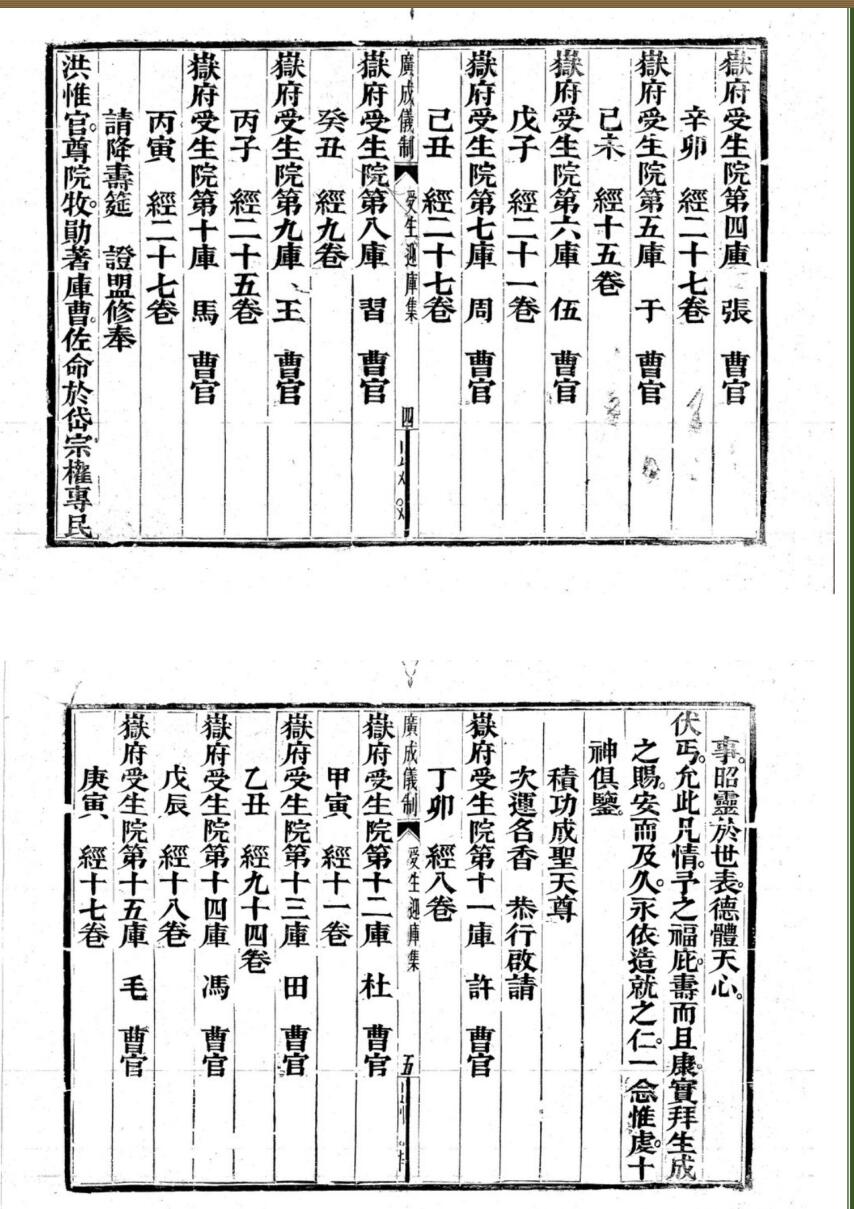 嶽府受生院第四庫 張 曹官
辛卯 經二十七卷
嶽府受生院第五庫 于 曹官
己未 經十五卷
嶽府受生院第六庫 伍 曹官
戊子 經二十一卷
嶽府受生院第七庫 周 曹官
己丑 經二十七卷
廣成儀制 受生迎庫集 四
嶽府受生院第八庫 習 曹官
癸丑 經九卷
嶽府受生院第九庫 王 曹官
丙子 經二十五卷
嶽府受生院第十庫 馬 曹官
丙寅 經二十七卷
請降壽筵 證盟修奉
洪惟官。尊院牧勛著庫曹。佐命於岱宗。權專民
事。昭靈於世表。德體天心。
伏丐。允此凡情。予之福庇。壽而且康。實拜生成
之賜。安而及久。永依造就之仁。一念惟虔。十
神俱鑒。
積功成聖天尊
次運名香 恭行啟請
嶽府受生院第十一庫 許 曹官
丁卯 經八卷
廣成儀制 受生迎庫集 五
嶽府受生院第十二庫 杜 曹官
甲寅 經十一卷
嶽府受生院第十三庫 田 曹官
乙丑 經九十四卷
嶽府受生院第十四庫 馮 曹官
戊辰 經十八卷
嶽府受生院第十五庫 毛 曹官
庚寅 經十七卷